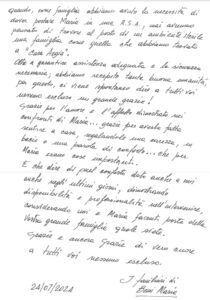 quando, come famiglia abbiamo avuto la necessità di
dover portare Maria in una R.S.A., mai avremmo
pensato di trovare al posto di un ambiente sterile
una famiglia come quella che abbiamo trovato
a "Casa
Oltre a garantire assistenza adeguata e la sicurezza
necessaria, abbiamo recepito tanta buona umanità,
per questo, ci viene spontaneo dire a tutti voi
nessuno escluso un grande grazie!
Grazie per l'amore e l'affetto dimostrato nei
confronti di Maria... grazie per averla fatta
sentire a casa, regalandole una carezza, un
bacio e una parola di conforto... che per
Maria erano cose importanti.
E che dire di quel conforto dato anche a noi
anche negli ultimi giorni, dimostrando
disponibilità e professionalità nell'
considerando noi e Maria facenti parte della
Vostra grande famiglia, grati siate.
Grazie e ancora grazie di vero cuore
a tutti voi nessuno escluso.
I familiari di
Maria
24/07/2024